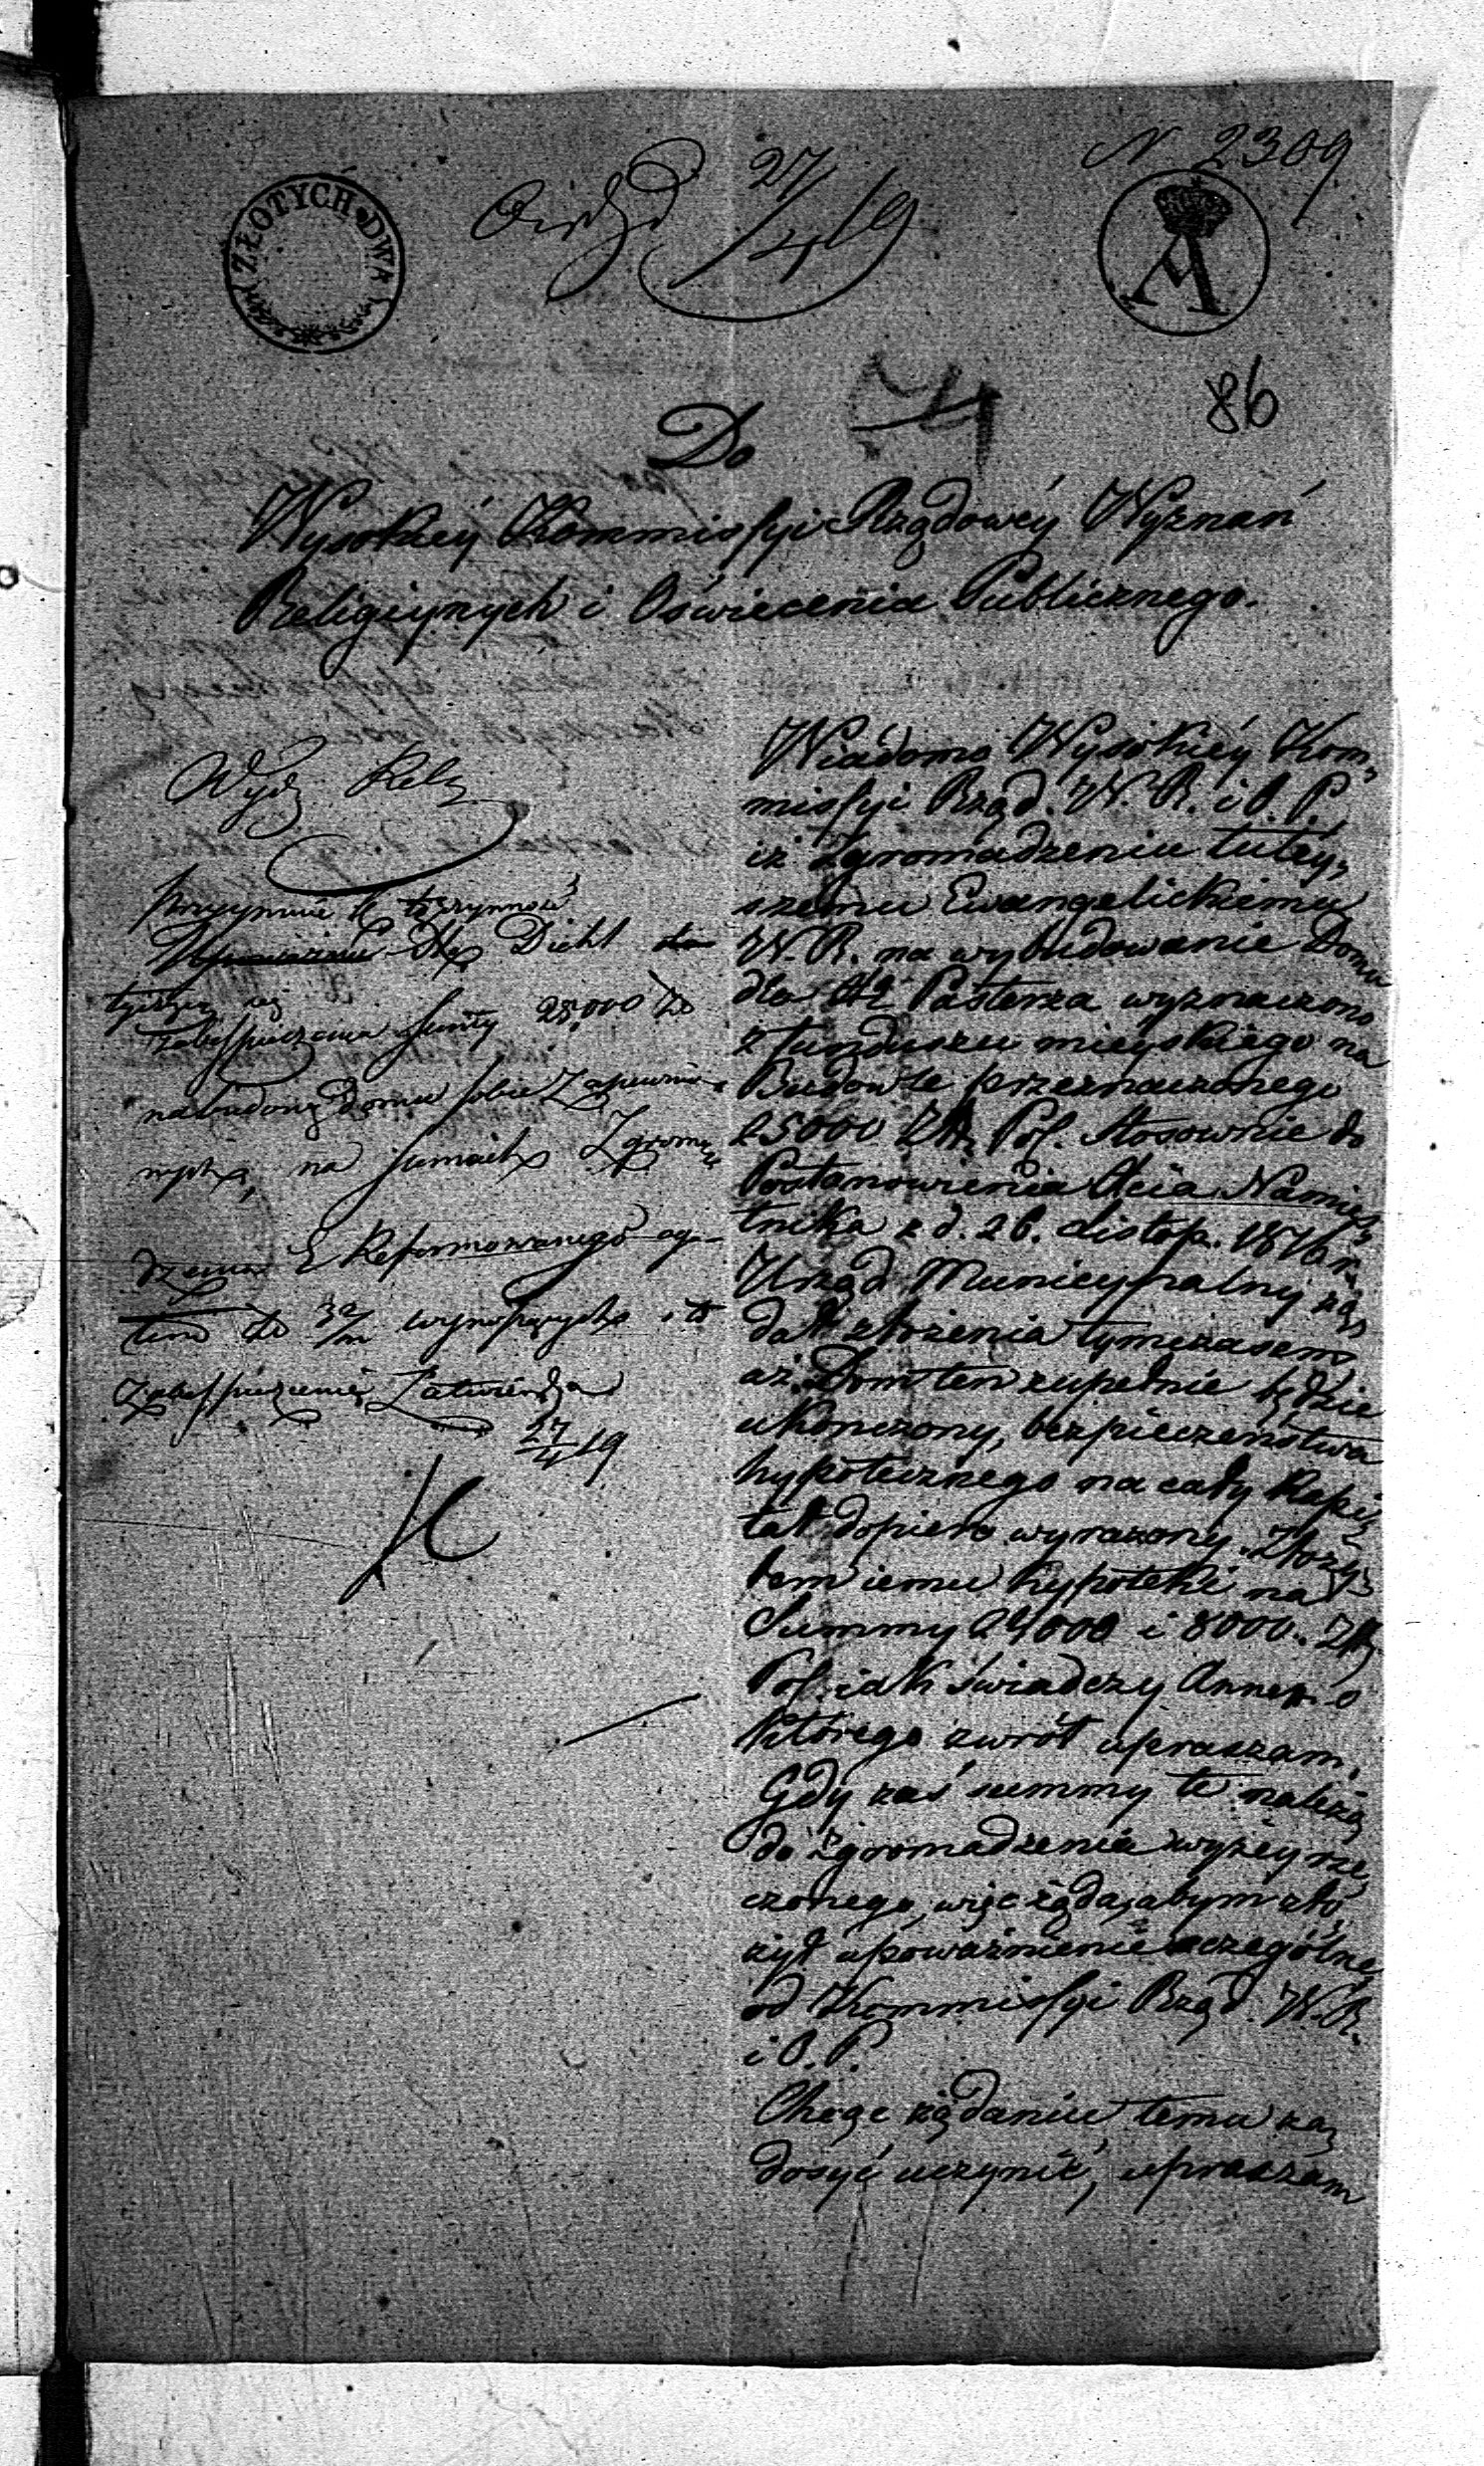 N 2309
27/4 19
ZŁOTYCH DWA
A
86
Do
Wysokiéy Kommissyi Rządowéy Wyznań
Religiynych i Oświecenia Publicznego.
Wydz. Relig.
Diehl
zabespieczenia summy 25,000 Zł
na budowę domu sobie zapewnio-
nych, na summach Zgroma-
dzenia E. Reformowanego ogo-
łem do 32/m wynoszących i to
zabespieczenie zatwierdza
27/4 19
Wiadomo Wysokiéy Kom-
missyi Rząd. W. R. i O. P.
iż zgromadzeniu tutey-
szemu Ewangelickiemu
W. R. na wybudowanie Domu
dla Pasterza wyznaczono
z funduszu mieyskiego na
Budowle przeznaczonego
25000 Zł. Pol. stosownie do
Postanowienia Xcia Namies-
tnika z d. 26. Listop. 1816 r.
Urząd Municypalny żą-
dał złożenia tymczasem
aż Dom ten zupełnie będzie
ukończony, bezpieczeństwa
hypotecznego na cały Kapi-
tał dopiero wyrażony. Złoży-
łem iemu hypoteki na
Summy 24000 i 8000. Zł.
Pol. iak świadczy Annex o
którego zwrót upraszam.
Gdy zaś summy te należą
do zgromadzenia wyżéy rze-
czonego, więc żąda, abym zło-
żył upoważnienie szczególne
od Kommissyi Rząd. W. R.
i O. P.
Chcąc żądaniu temu za-
dosyć uczynić, upraszam